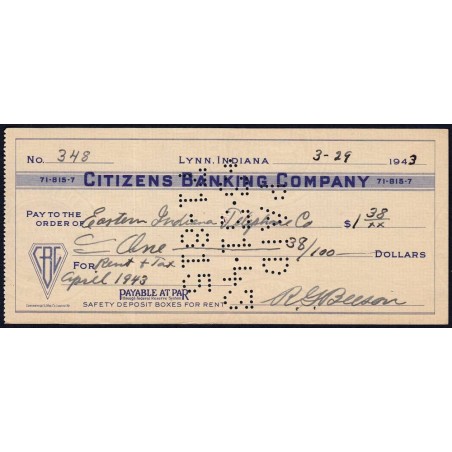 No. 348 Lynn, Indiana 3-29 1943
71-815-7 Citizens Banking Company 71-815-7
Pay to the
order of Eastern Indiana Telephone Co $1 38/xx
One 38/100 Dollars
For Rent + Tax
April 1943
CBC
Payable at Par
through Federal Reserve System
Safety Deposit Boxes for Rent
R. G. Beeson